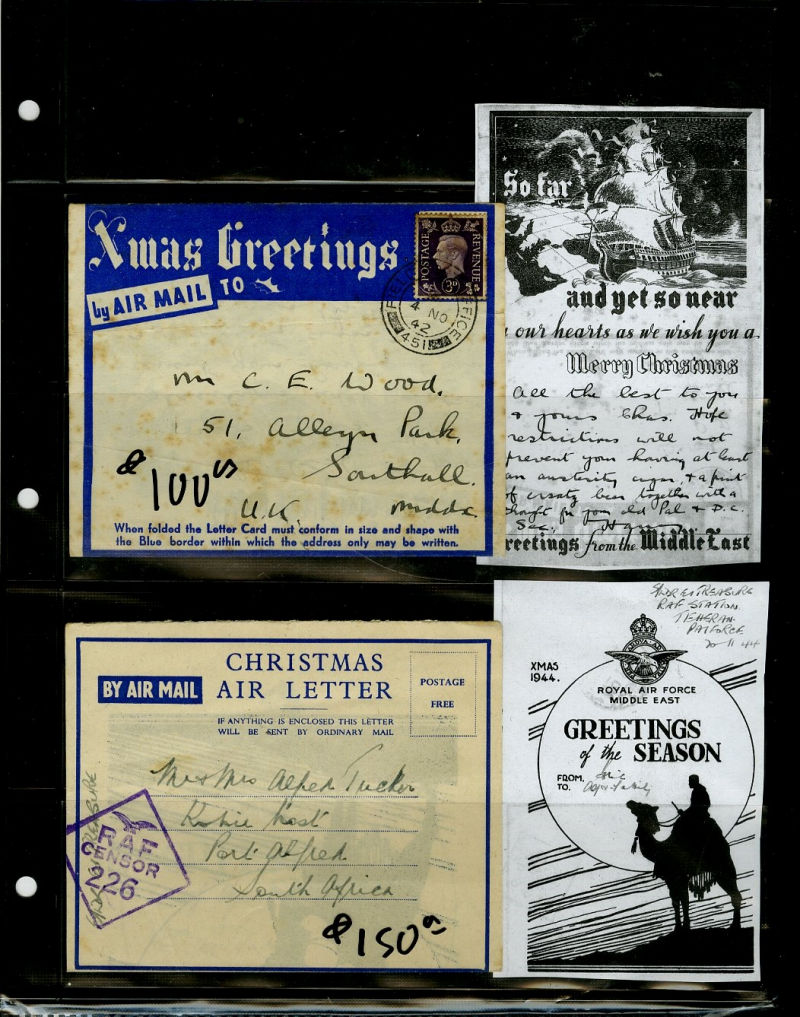 Xmas Greetings
by AIR MAIL TO
POSTAGE REVENUE
3D
4 NO
42
451
Mr C. E. Wood,
51, Alleyn Park,
Southall.
U.K. Middx.
$100
When folded the Letter Card must conform in size and shape with
the Blue border within which the address only may be written.
So far
and yet so near
our hearts as we wish you a
Merry Christmas
All the best to you
& yours Chas. Hope
restrictions will not
prevent your having at least
an austerity cigar, & a pint
of beer together with a
for you old Pal & D.C.
reetings from the Middle East
CHRISTMAS
AIR LETTER
BY AIR MAIL
POSTAGE
FREE
IF ANYTHING IS ENCLOSED THIS LETTER
WILL BE SENT BY ORDINARY MAIL
Mr & Mrs Alfred Tucker
Kowie West
Port Alfred
South Africa
RAF
CENSOR
226
TREASURE
$150
TREASURE
RAF STATION.
TEHERAN.
PAIFORCE
20 11 44
XMAS
1944.
ROYAL AIR FORCE
MIDDLE EAST
GREETINGS
of the SEASON
FROM.
TO.